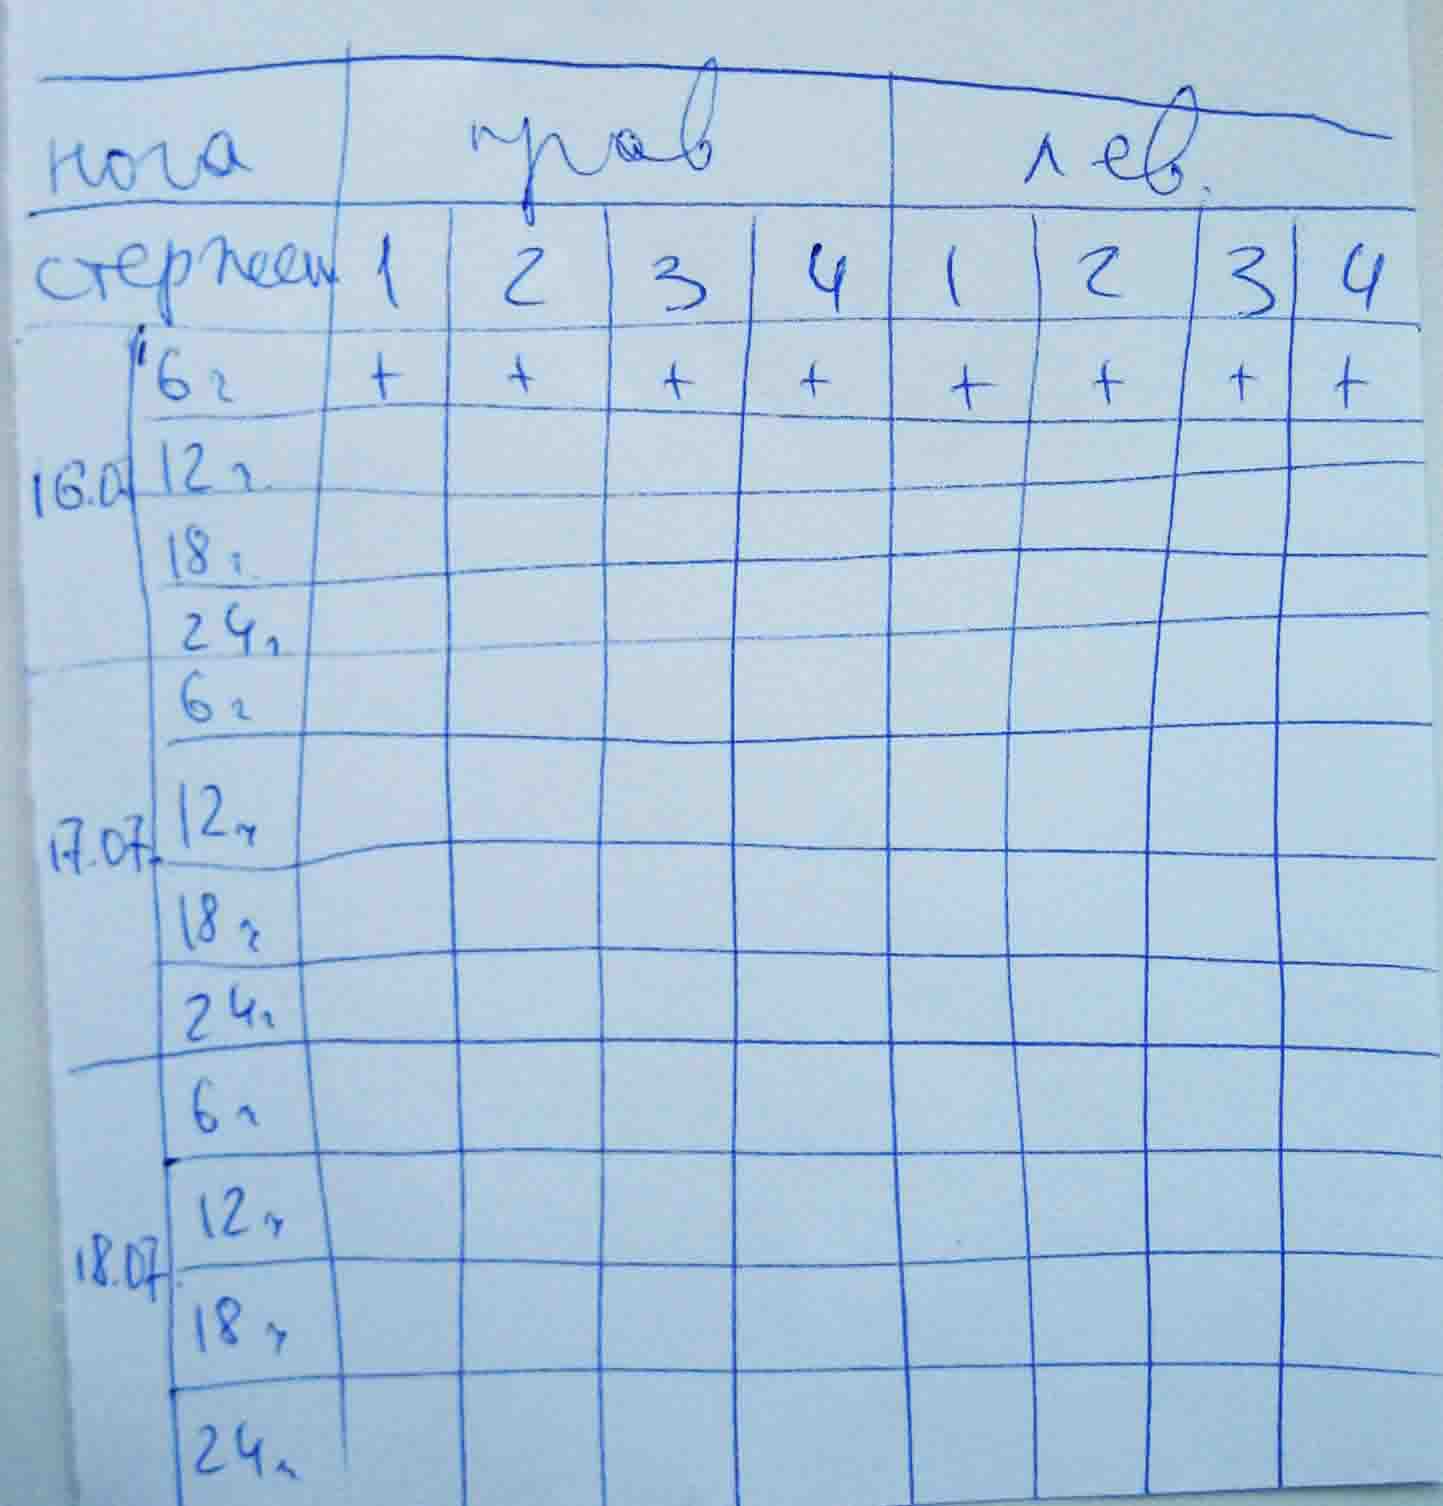 нога прав лев.
стержен 1 2 3 4 1 2 3 4
6 ч + + + + + + + +
16.0 12 ч
18 ч
24 ч
6 ч
17.07 12 ч
18 ч
24 ч
6 ч
12 ч
18.07
18 ч
24 ч